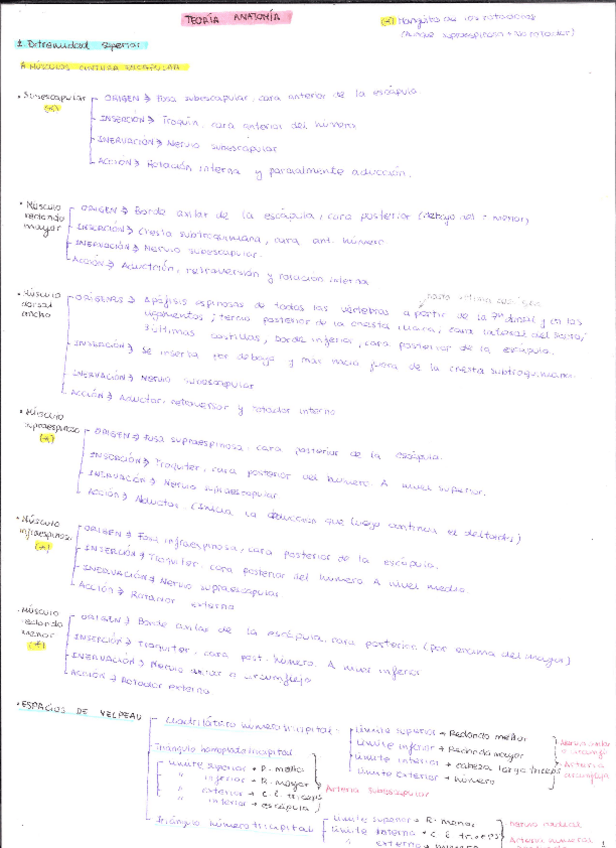 TEORÍA ANATOMÍA
(*) Manguito de los rotadores
1. Extremidad superior
A. MÚSCULOS CINTURA ESCAPULAR
• Subescapular (*)
ORIGEN → Fosa subescapular, cara anterior de la escápula
INSERCIÓN → Troquín, cara anterior del húmero
INERVACIÓN → Nervio subescapular
ACCIÓN → Rotación interna y parcialmente aducción.
• Músculo redondo mayor
ORIGEN → Borde axilar de la escápula, cara posterior (debajo del menor)
INSERCIÓN → Cresta subtroquiniana, cara ant. húmero
INERVACIÓN → Nervio subescapular.
ACCIÓN → Aducción, retroversión y rotación interna
• Músculo dorsal ancho
ORÍGENES → Apófisis espinosas de todas las vértebras a partir de la 7ª dorsal y en los
ligamentos; tercio posterior de la cresta ilíaca, cara lateral del sacro,
3 últimas costillas, borde inferior, cara posterior de la escápula.
INSERCIÓN → Se inserta por debajo y más hacia fuera de la cresta subtroquiniana.
INERVACIÓN → Nervio subescapular
ACCIÓN → Aductor, retroversor y rotador interno
• Músculo supraespinoso (*)
ORIGEN → Fosa supraespinosa, cara posterior de la escápula.
INSERCIÓN → Troquiter, cara posterior del húmero. A nivel superior.
INERVACIÓN → Nervio supraescapular
ACCIÓN → Abductor. (Inicia la abducción que luego continúa el deltoides)
• Músculo infraespinoso (*)
ORIGEN → Fosa infraespinosa, cara posterior de la escápula.
INSERCIÓN → Troquiter, cara posterior del húmero. A nivel medio.
INERVACIÓN → Nervio supraescapular
ACCIÓN → Rotador externo
• Músculo redondo menor (*)
ORIGEN → Borde axilar de la escápula, cara posterior. (por encima del mayor)
INSERCIÓN → Troquiter, cara post. húmero. A nivel inferior
INERVACIÓN → Nervio axilar o circunflejo
ACCIÓN → Rotador externo
• ESPACIOS DE VELPEAU
Cuadrilátero humerotricipital:
Límite superior → Redondo menor
Límite inferior → Redondo mayor
Límite interior → cabeza larga tríceps
Límite exterior → húmero
Nervio axilar o circunflejo
Arteria circunfleja
Triángulo homotricipital
Límite superior → R. menor
" inferior → R. mayor
" exterior → C. L. tríceps
" interior → escápula
Arteria subescapular
Triángulo húmerotricipital
Límite superior → R. menor
Límite interno → C. L. tríceps
" externo → húmero
Nervio radial
Arteria humeral